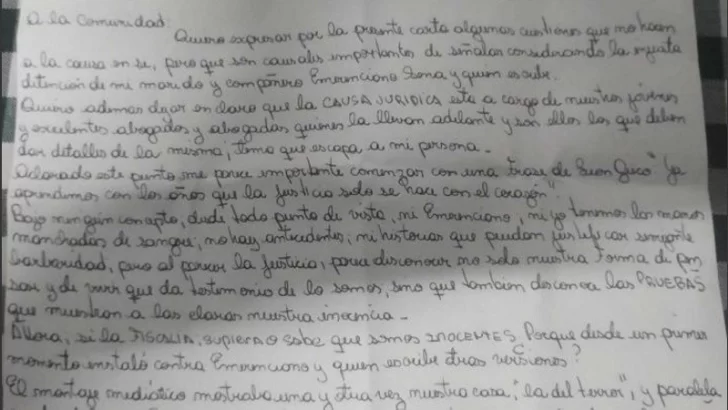 A la Comunidad:
Quiero expresar por la presente carta algunas cuestiones que no hacen
a la causa en sí, pero que son causales importantes de señalar considerando la injusta
detención de mi marido y compañero Emerenciano Sena y quien escribe.
Quiero ademas dejar en claro que la CAUSA JURIDICA esta a cargo de nuestros jóvenes
y excelentes abogados y abogadas quienes la llevan adelante y son ellos los que deben
dar detalles de la misma, tema que escapa a mi persona.
Aclarado este punto me parece importante comenzar con una frase de "ya
aprendimos con los años que la justicia solo se hace con el corazón".
Bajo ningún concepto, desde todo punto de vista, ni Emerenciano, ni yo tenemos las manos
manchadas de sangre; no hay antecedentes, ni historias que puedan justificar semejante
barbaridad, pero al parecer la justicia, desconocer no solo nuestra forma de pen
sar y de vivir que da testimonio de lo somos, sino que tambien desconoce las PRUEBAS
que muestran a las claras nuestra inocencia.
Ahora, si la FISCALIA, SUPIERA O sabe que somos INOCENTES Porque desde un primer
momento instaló contra Emerenciano y quien escribe otras versiones?
El montaje mediático mostraba una y otra vez nuestra casa, "la del terror", y paralela